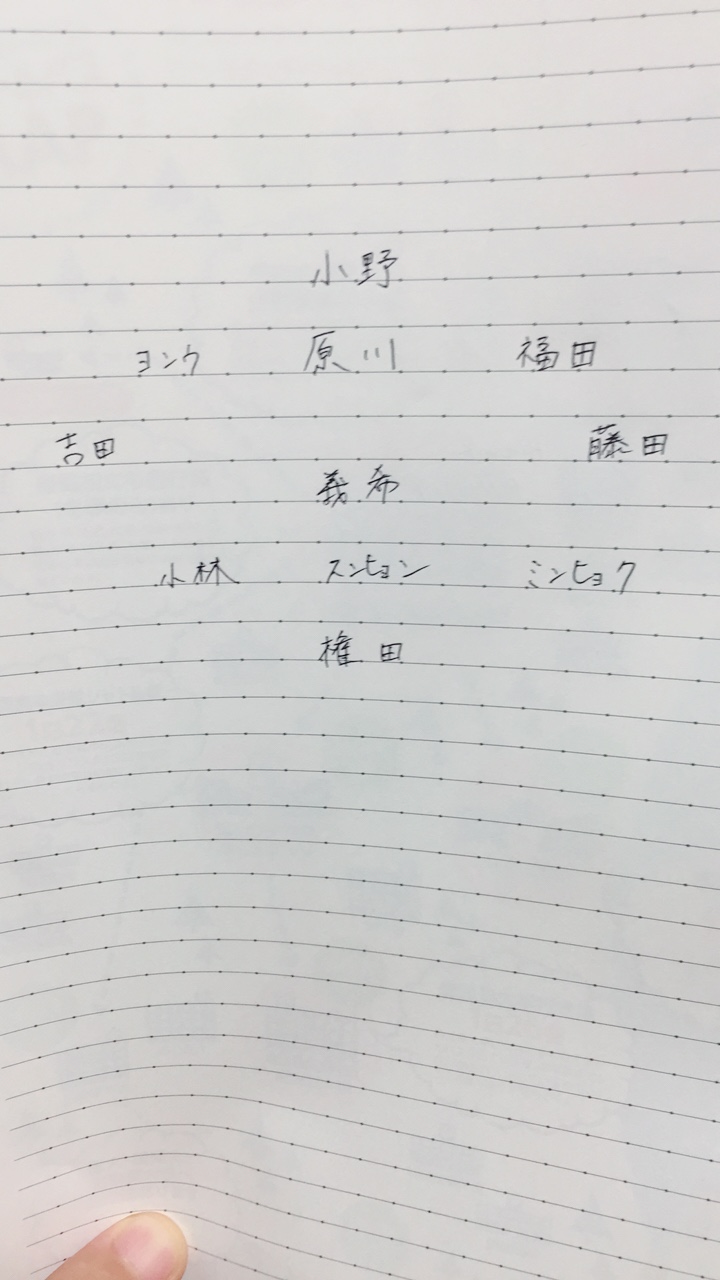 小野
ヨンウ 原川 福田
吉田 藤田
義希
小林 スンヒョン ミンヒョク
権田